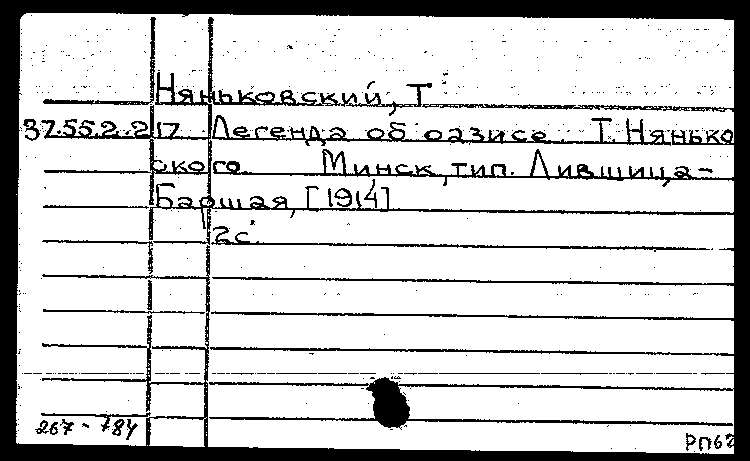 Няньковский, Т
37.55.2.217 Легенда об оазисе. Т. Нянько
ского. Минск, тип. Лившица-
Баршая, [1914]
2с.
267-784
РП62